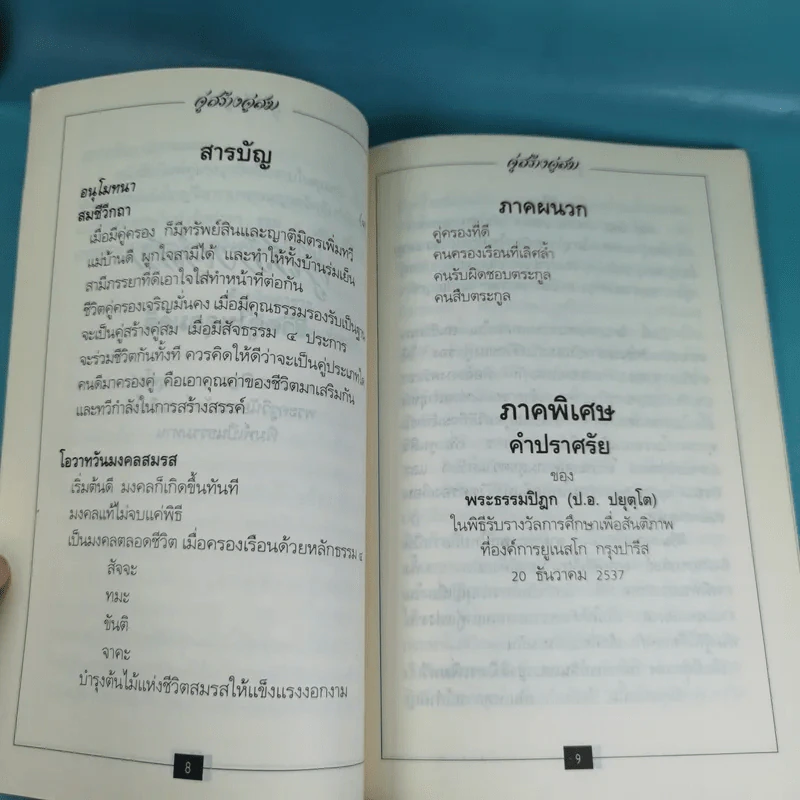 คู่สร้างคู่สม
สารบัญ
อนุโมทนา
สมชีวิกถา
เมื่อมีคู่ครอง ก็มีทรัพย์สินและญาติมิตรเพิ่มทวี
แม่บ้านดี ผูกใจสามีได้ และทำให้ทั้งบ้านร่มเย็น
สามีภรรยาที่ดีเอาใจใส่ทำหน้าที่ต่อกัน
ชีวิตคู่ครองเจริญมั่นคง เมื่อมีคุณธรรมรองรับเป็นฐาน
จะเป็นคู่สร้างคู่สม เมื่อมีสัจธรรม ๔ ประการ
จะร่วมชีวิตกันทั้งที ควรคิดให้ดีว่าจะเป็นคู่ประเภทใด
คนดีมาครองคู่ คือเอาคุณค่าของชีวิตมาเสริมกัน
และทวีกำลังในการสร้างสรรค์
โอวาทวันมงคลสมรส
เริ่มต้นดี มงคลก็เกิดขึ้นทันที
มงคลแท้ไม่จบแค่พิธี
เป็นมงคลตลอดชีวิต เมื่อครองเรือนด้วยหลักธรรม ๔
สัจจะ
ทมะ
ขันติ
จาคะ
บำรุงต้นไม้แห่งชีวิตสมรสให้แข็งแรงงอกงาม
8
คู่สร้างคู่สม
ภาคผนวก
คู่ครองที่ดี
คนครองเรือนที่เลิศล้ำ
คนรับผิดชอบตระกูล
คนสืบตระกูล
ภาคพิเศษ
คำปราศรัย
ของ
พระธรรมปิฎก (ป.อ. ปยุตฺโต)
ในพิธีรับรางวัลการศึกษาเพื่อสันติภาพ
ที่องค์การยูเนสโก กรุงปารีส
20 ธันวาคม 2537
9